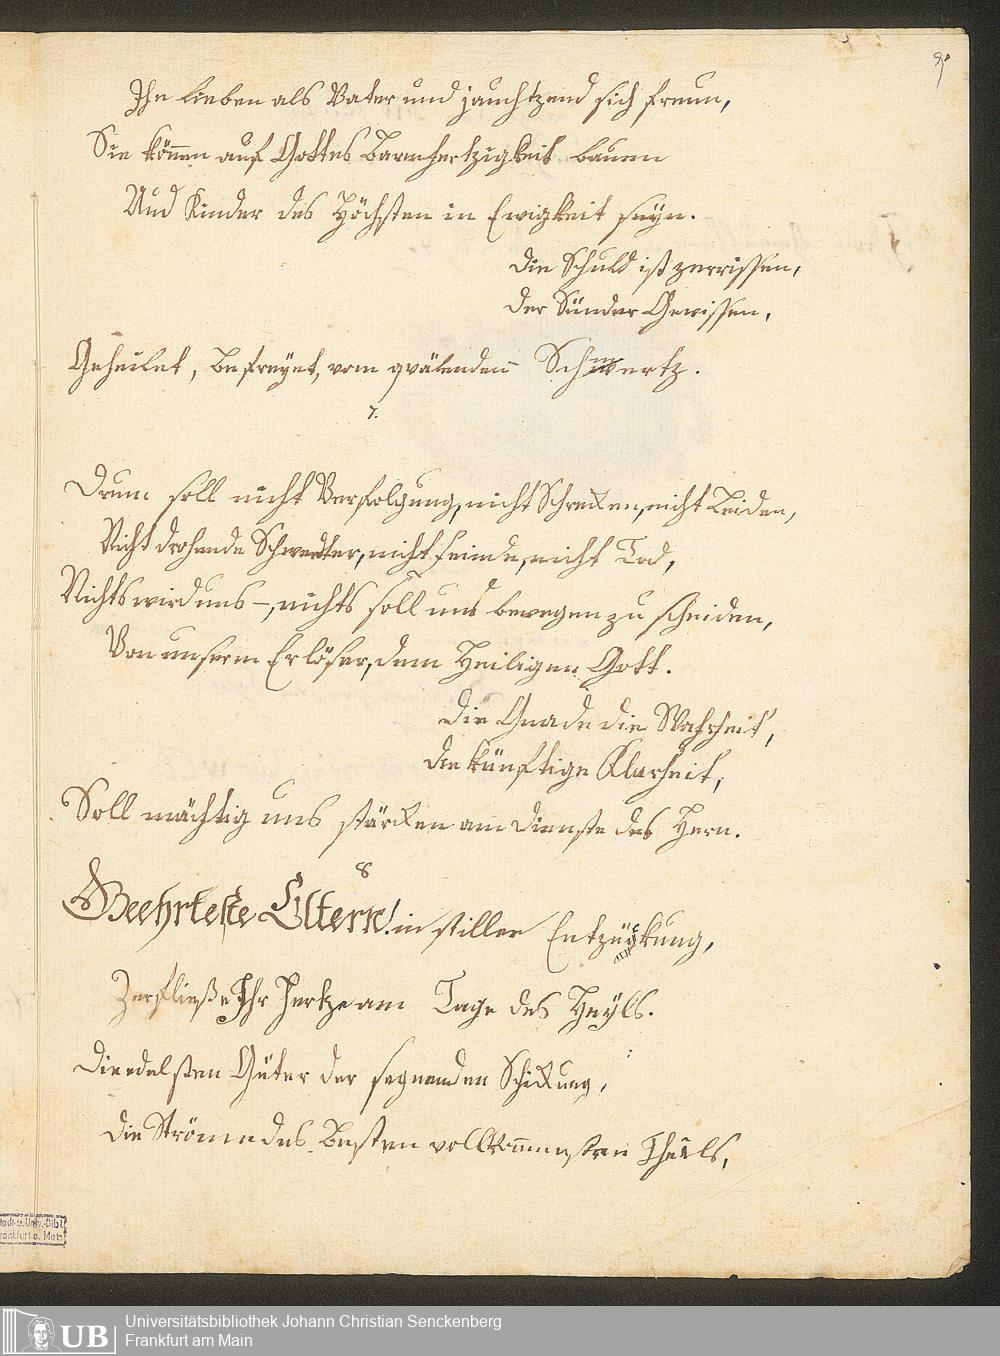 9.
Ihn lieben als Vater und jauchtzend sich freun,
Sie können auf Gottes Barmhertzigkeit bauen
Und Kinder des Höchsten in Ewigkeit seyn.
Die Schuld ist zerrissen,
Der Sünder Gewissen,
Geheilet, befreyet, vom quälenden Schmertz.
7.
Drum soll nicht Verfolgung, nicht Schrecken, nicht Leiden,
Nicht drohende Schwerdter, nicht Feinde, nicht Tod,
Nichts wird uns –, nichts soll uns bewegen zu scheiden,
Von unserm Erlöser, dem Heiligen Gott.
Die Gnade die Wahrheit,
Die künftige Klarheit,
Soll mächtig uns stärcken am Dienste des Hern.
8
Geehrteste Eltern! in stiller Entzückung,
Zerfließe Ihr Hertze am Tage des Heyls.
Die edelsten Güter der segnenden Schickung,
Die Ströme des Besten vollkommensten Theils,
Stadt- u. Univ.-Bibl.
Frankfurt a. Main
UB
Universitätsbibliothek Johann Christian Senckenberg
Frankfurt am Main